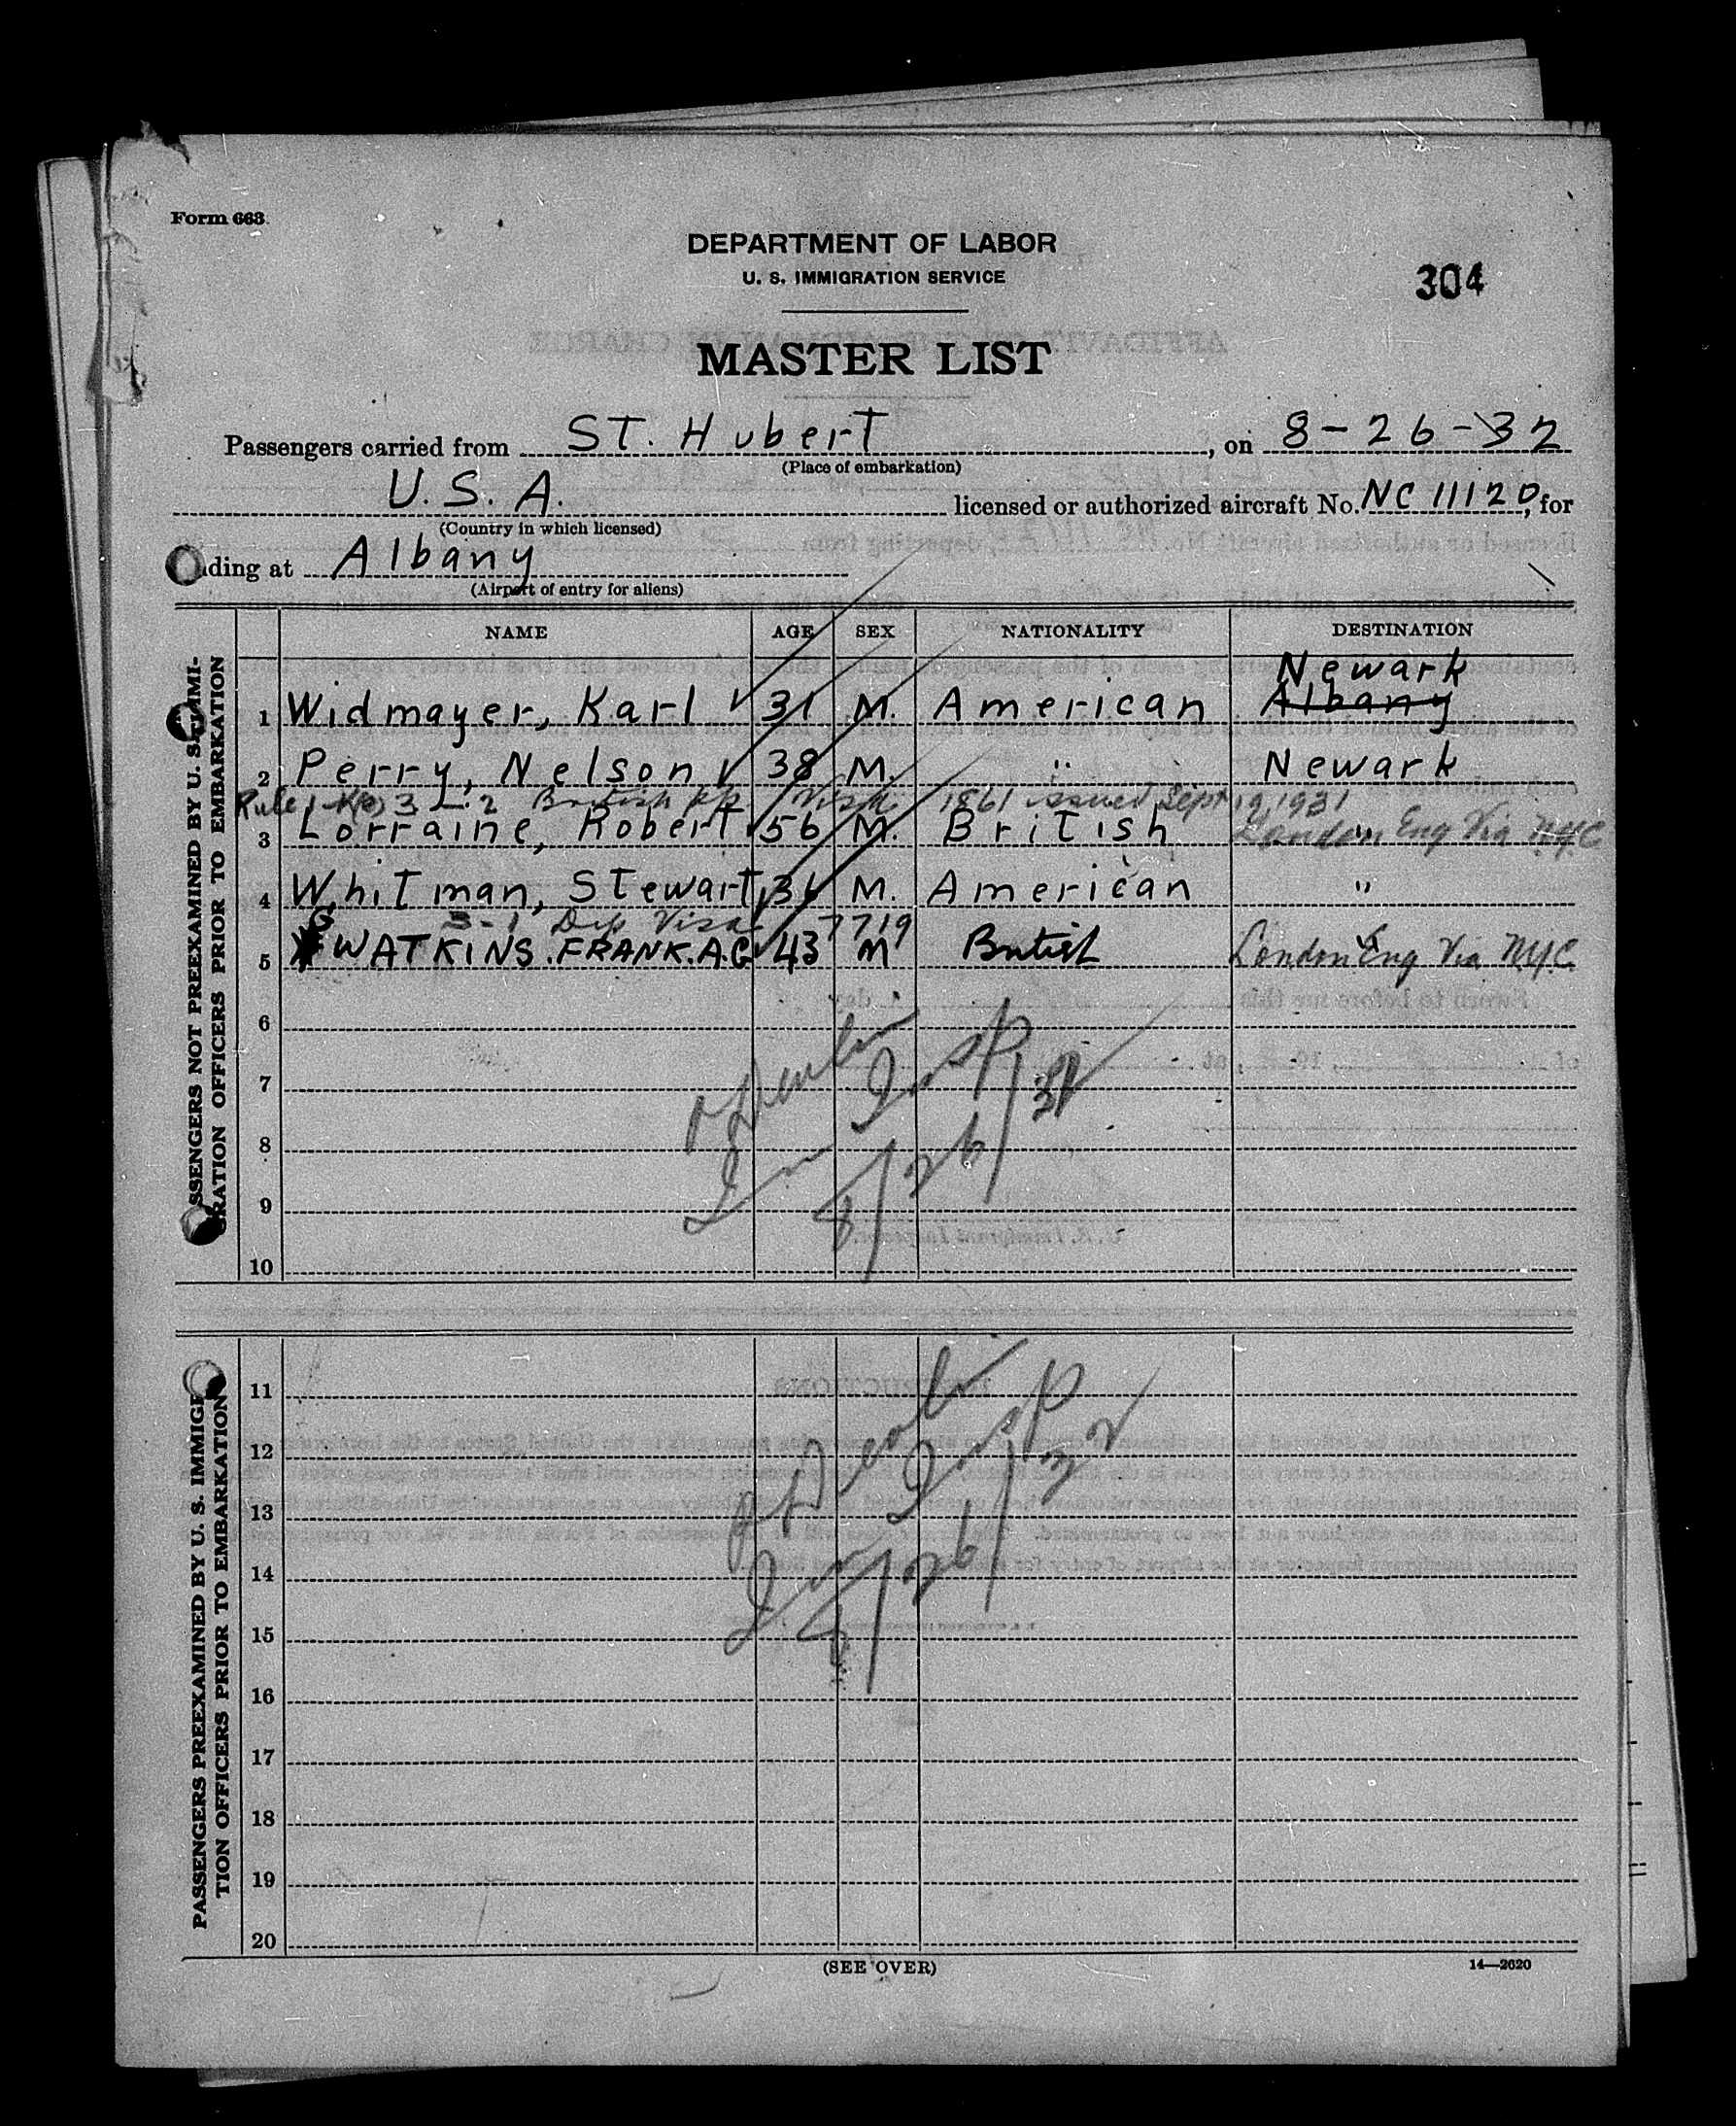 Form 663
DEPARTMENT OF LABOR
U. S. IMMIGRATION SERVICE
304
MASTER LIST
Passengers carried from ST. Hubert, on 8-26-32
(Place of embarkation)
U.S.A. licensed or authorized aircraft No. NC 11120, for
(Country in which licensed)
ding at Albany
(Airport of entry for aliens)
NAME AGE SEX NATIONALITY DESTINATION
SSENGERS NOT PREEXAMINED BY U. S. IMMI-
GRATION OFFICERS PRIOR TO EMBARKATION
Newark
1 Widmayer, Karl 31 M. American Albany
2 Perry, Nelson 38 M. " Newark
Rule 3 2 British Visa 1861 issued Sept 19, 1931
3 Lorraine, Robert 56 M. British " London Eng Via NYC
4 Whitman, Stewart 36 M. American "
3-1 Dip Visa 7719
5 G WATKINS. FRANK. A.G 43 M British London Eng Via NYC
6
7
8
9
10
Imm Insp
8/26/32
PASSENGERS PREEXAMINED BY U. S. IMMIGR
TION OFFICERS PRIOR TO EMBARKATION
11
12
13
14
15
16
17
18
19
20
Imm Insp
8/26/32
(SEE OVER)
14—2620